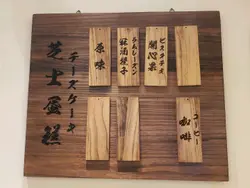 芝士蛋糕
チーズケーキ
原味
蘭酒提子
ラムレーズン
開心果
ピスタチオ
咖啡
コーヒー